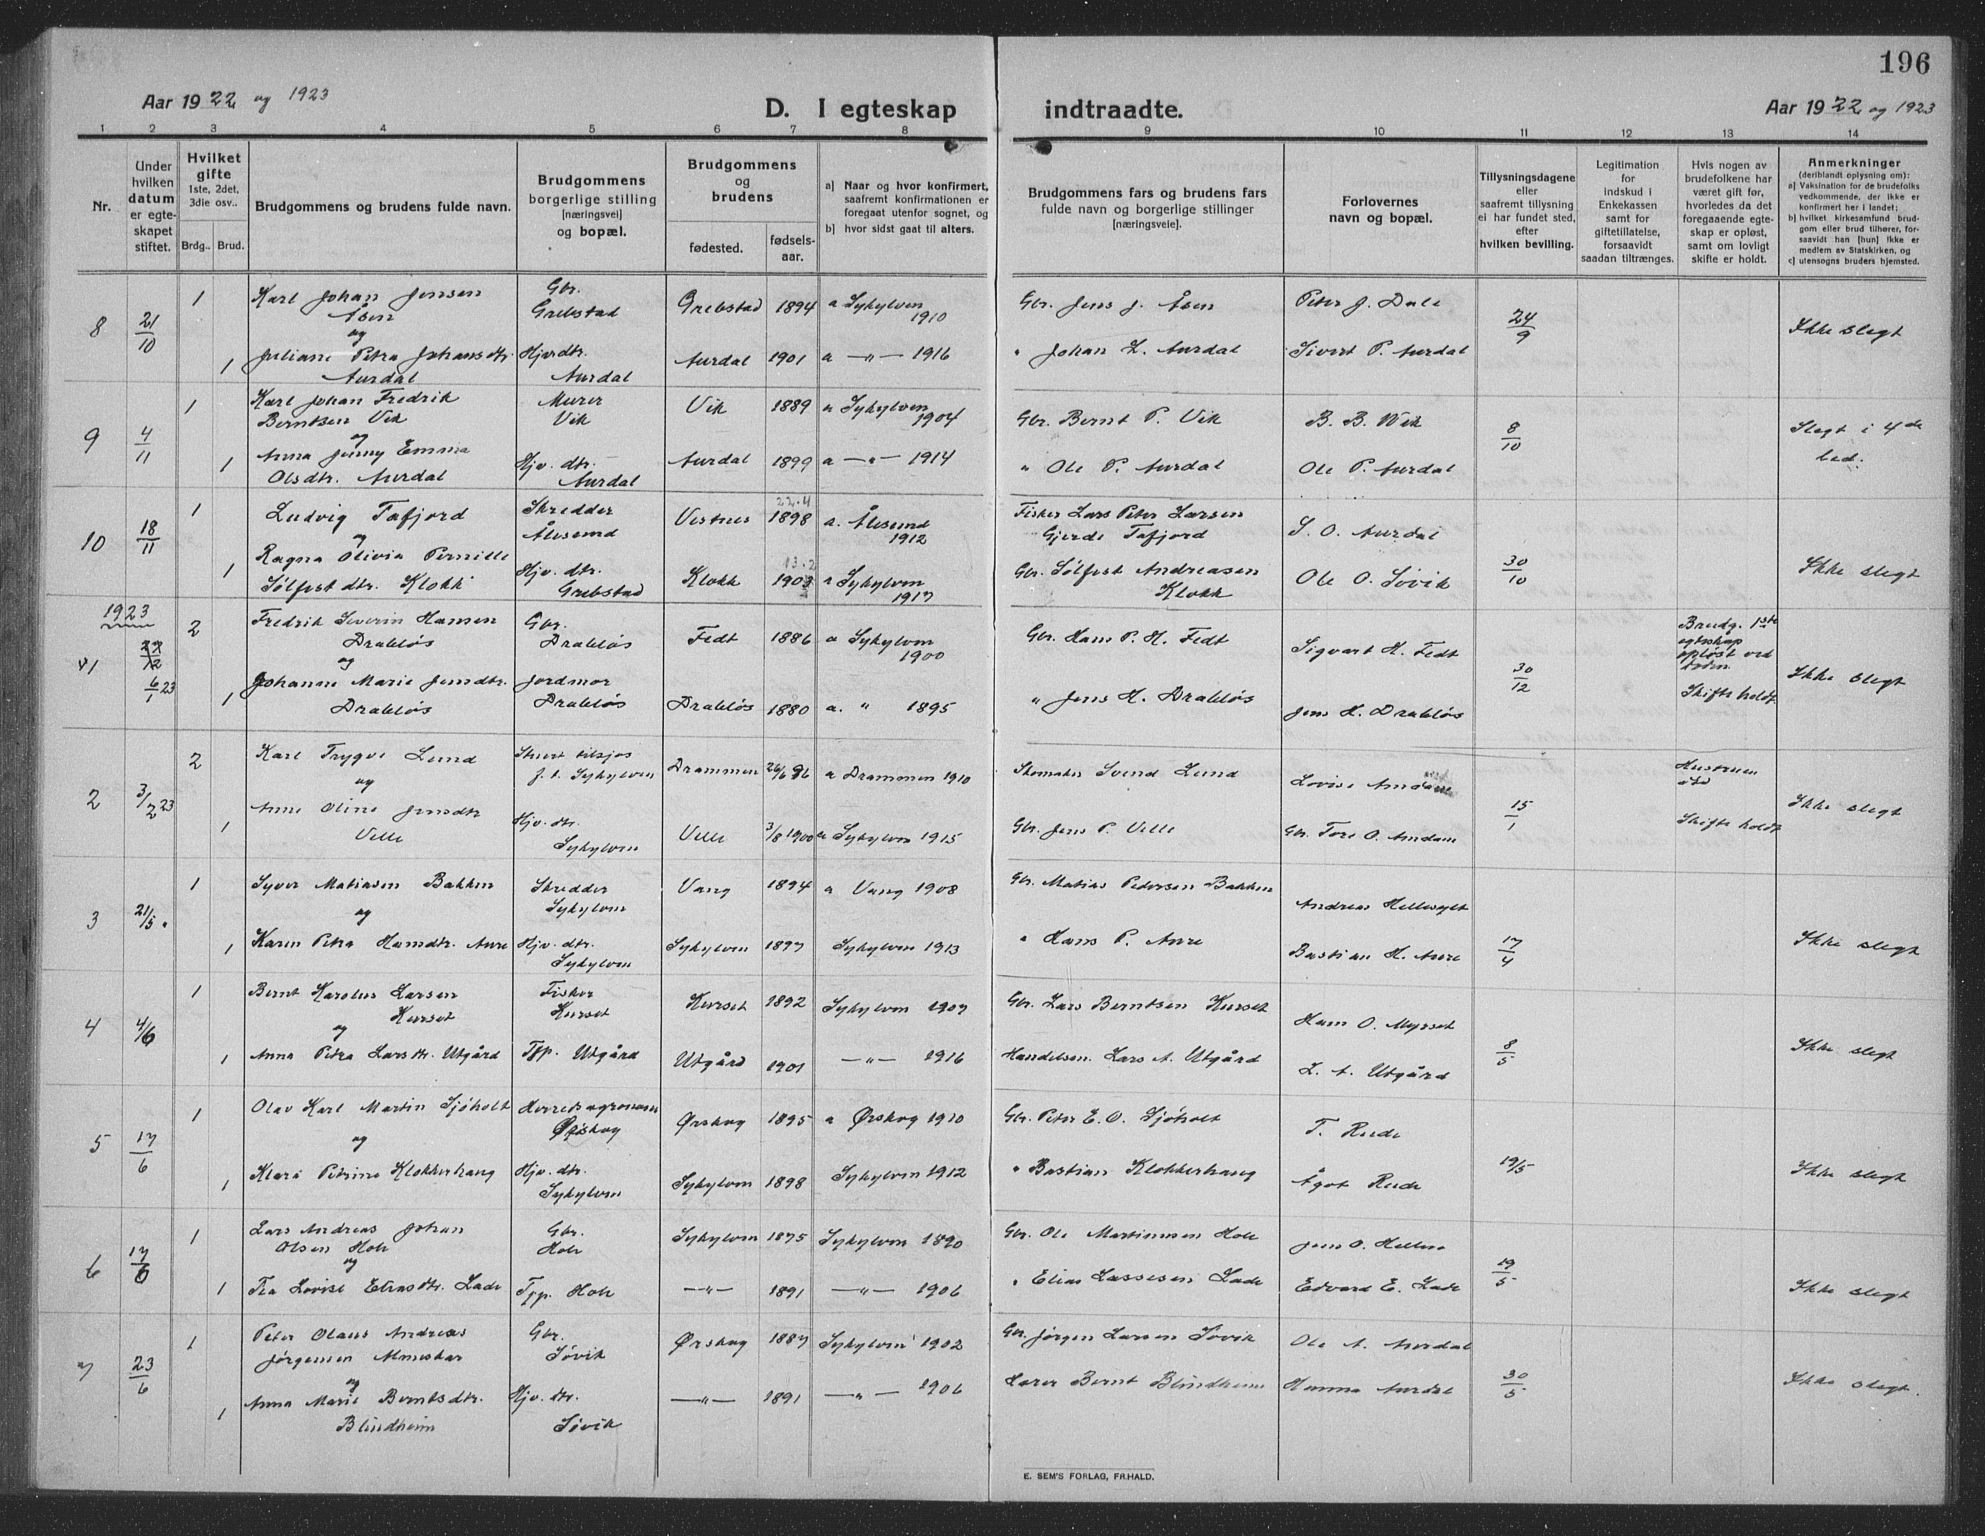 196
Aar 1922 og 1923
D. I egteskap indtraadte.
Aar 1922 og 1923
1 2 3 4 5 6 7 8 9 10 11 12 13 14
Nr.
Under hvilken datum er egteskapet stiftet.
Hvilket gifte 1ste, 2det, 3die osv..
Brdg.. Brud.
Brudgommens og brudens fulde navn.
Brudgommens borgerlige stilling [næringsvei] og bopæl.
Brudgommens og brudens
fødested. fødselsaar.
a] Naar og hvor konfirmert, saafremt konfirmationen er foregaat utenfor sognet, og
b] hvor sidst gaat til alters.
Brudgommens fars og brudens fars fulde navn og borgerlige stillinger [næringsveie].
Forlovernes navn og bopæl.
Tillysningsdagene eller saafremt tillysning ei har fundet sted, efter hvilken bevilling.
Legitimation for indskud i Enkekassen samt for giftetillatelse, forsaavidt saadan tiltrænges.
Hvis nogen av brudefolkene har været gift før, hvorledes da det foregaaende egteskap er opløst, samt om lovligt skifte er holdt.
Anmerkninger (deriblandt oplysning om):
a] Vaksination for de brudefolks vedkommende, der ikke er konfirmert her i landet;
b] hvilket kirkesamfund brudgom eller brud tilhører, forsaavidt han [hun] ikke er medlem av Statskirken, og
c] utensogns bruders hjemsted.
8 21/10 1 Karl Johan Jensen Åsen Gbr. Grebstad Grebstad 1894 a Sykylven 1910 Gbr. Jens J. Åsen Peter J. Dale 24/9 Ikke slegt
og
1 Juliane Petra Johansdtr. Aurdal Hjv. dtr. Aurdal Aurdal 1901 a —"— 1916 " Johan L. Aurdal Sivert P. Aurdal
9 4/11 1 Karl Johan Fredrik Berntsen Vik Murer Vik Vik 1889 a Sykylven 1904 Gbr. Bernt P. Vik B. B. Wik 8/10 Slegt i 4de led.
og
1 Anna Jenny Emma Olsdtr. Aurdal Hjv. dtr. Aurdal Aurdal 1899 a —"— 1914 " Ole P. Aurdal Ole P. Aurdal
10 18/11 1 Ludvig Tafjord Skredder Ålesund Vestnes 22.4 1898 a. Ålesund 1912 Fisker Lars Peter Larsen Gjerde Tafjord S. O. Aurdal 30/10 Ikke slegt
og
1 Ragna Olivia Pernille Sølfestdtr. Klokk Hjv. dtr. Grebstad Klokk 13.2 1903 a Sykylven 1917 Gbr. Sølfest Andreasen Klokk Ole O. Søvik
1923
1 6/1 23 2 Fredrik Severin Hansen Drabløs Gbr. Drabløs Fedt 1886 a Sykylven 1900 Gbr. Hans P. H. Fedt Sigvart H. Fedt 30/12 Brudg. 1ste egteskap opløst ved døden. Skifte holdt Ikke slegt
og
1 Johanne Marie Jensdtr. Drabløs Jordmor Drabløs Drabløs 1880 a. " 1895 " Jens H. Drabløs Jens H. Drabløs
2 3/2 23 2 Karl Trygve Lund Drammen 26/6 86 a Drammen 1910 Skomaker Svend Lund Lovise Amdam 15/1 Hustruen død Skifte holdt Ikke slegt
og
1 Anne Oline Jensdtr Velle Hjv. dtr. Sykylven Velle 3/8 1900 a Sykylven 1915 Gbr. Jens P. Velle Gbr. Tore O. Amdam
3 21/5 1 Syver Matiasen Bakken Skredder Sykylven Vang 1894 a Vang 1908 Gbr. Matias Pedersen Bakken Andreas Hellesylt 17/4 Ikke slegt
og
1 Karen Petra Hansdtr. Aure Hjv. dtr. Sykylven Sykylven 1897 Sykylven 1913 " Hans P. Aure Bastian H. Aure
4 4/6 1 Bernt Karolus Larsen Kurset Fisker Kurset Kurset 1892 Sykylven 1907 Gbr. Lars Berntsen Kurset Hans O. Myrset 8/5 Ikke slegt
og
1 Anna Petra Larsdtr. Utgård Tjp. Utgård Utgård 1901 —"— 1916 Handelsm. Lars A. Utgård L. A. Utgård
5 17/6 1 Olav Karl Martin Sjøholt Herredsagronom Ørskog Ørskog 1895 a Ørskog 1910 Gbr. Peter E. O. Sjøholt T. Rude 19/5 Ikke slegt
og
1 Klara Petrine Klokkerhaug Hjv. dtr. Sykylven Sykylven 1898 Sykylven 1912 " Bastian Klokkerhaug Ågot Rude
6 17/6 1 Lars Andreas Johan Olsen Hole Gbr. Hole Sykylven 1875 Sykylven 1890 Gbr. Ole Martinusen Hole Jens O. Hellen 19/5 Ikke slegt
og
1 Tea Lovise Eliasdtr. Lade Tjp. Hole —"— 1891 —"— 1906 " Elias Lassesen Lade Edvard E. Lade
7 23/6 1 Peter Olaus Andreas Jørgensen Almeskar Gbr. Søvik Ørskog 1887 Sykylven 1902 Gbr. Jørgen Larsen Søvik Ole A. Aurdal 30/5 Ikke slegt.
og
1 Anna Marie Berntsdtr. Blindheim Hjv. dtr. Søvik —"— 1891 —"— 1906 Lærer Bernt Blindheim Hanna Aurdal
E. SEM'S FORLAG, FR.HALD.